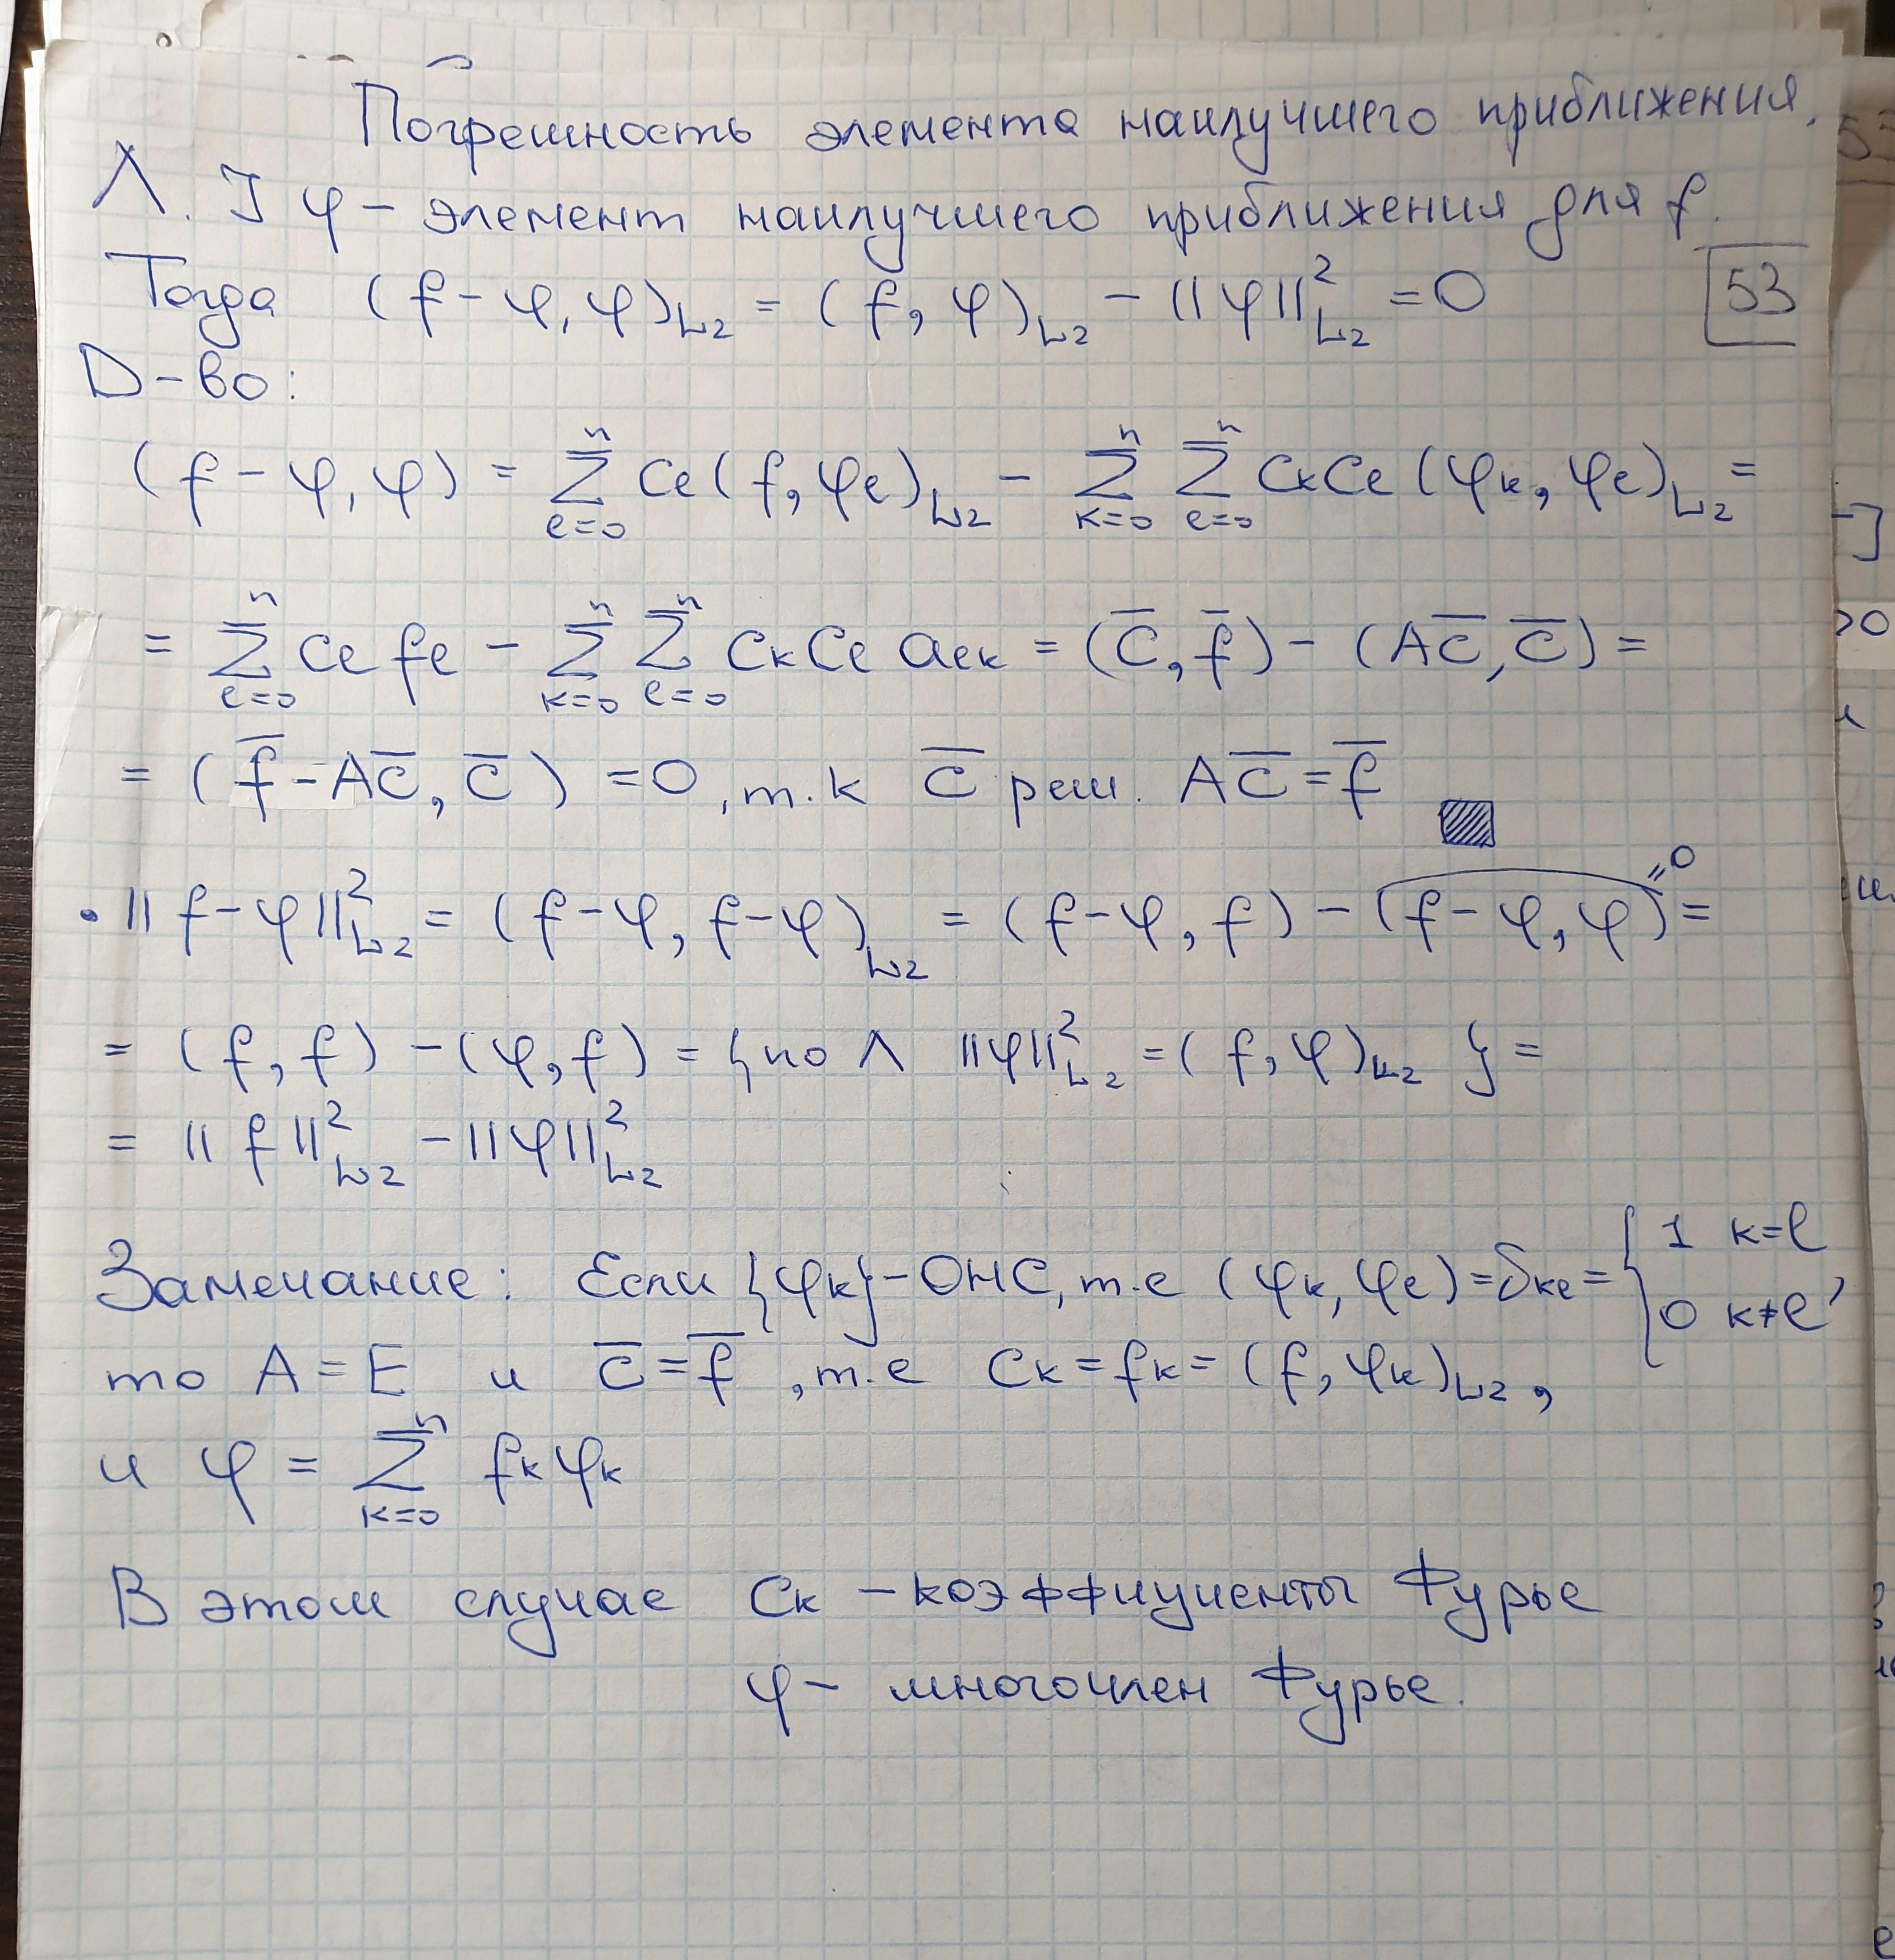 Погрешность элемента наилучшего приближения.
Λ. ] φ – элемент наилучшего приближения для f.
Тогда (f - φ, φ)_{L_2} = (f, φ)_{L_2} - ||φ||^2_{L_2} = 0
53
D-во:
(f - φ, φ) = \sum_{l=0}^{n} C_l (f, φ_l)_{L_2} - \sum_{k=0}^{n} \sum_{l=0}^{n} C_k C_l (φ_k, φ_l)_{L_2} =
= \sum_{l=0}^{n} C_l f_l - \sum_{k=0}^{n} \sum_{l=0}^{n} C_k C_l a_{lk} = (\overline{C}, \overline{f}) - (A\overline{C}, \overline{C}) =
= (\overline{f} - A\overline{C}, \overline{C}) = 0, т.к \overline{C} реш. A\overline{C} = \overline{f}
• ||f - φ||^2_{L_2} = (f - φ, f - φ)_{L_2} = (f - φ, f) - \overbrace{(f - φ, φ)}^{=0} =
= (f, f) - (φ, f) = {по Λ ||φ||^2_{L_2} = (f, φ)_{L_2} } =
= ||f||^2_{L_2} - ||φ||^2_{L_2}
Замечание: Если {φ_k} - ОНС, т.е (φ_k, φ_l) = δ_{kl} = { 1 k=l
0 k≠l ,
то A = E и \overline{C} = \overline{f}, т.е C_k = f_k = (f, φ_k)_{L_2},
и φ = \sum_{k=0}^{n} f_k φ_k
В этом случае C_k – коэффициенты Фурье
φ – многочлен Фурье.